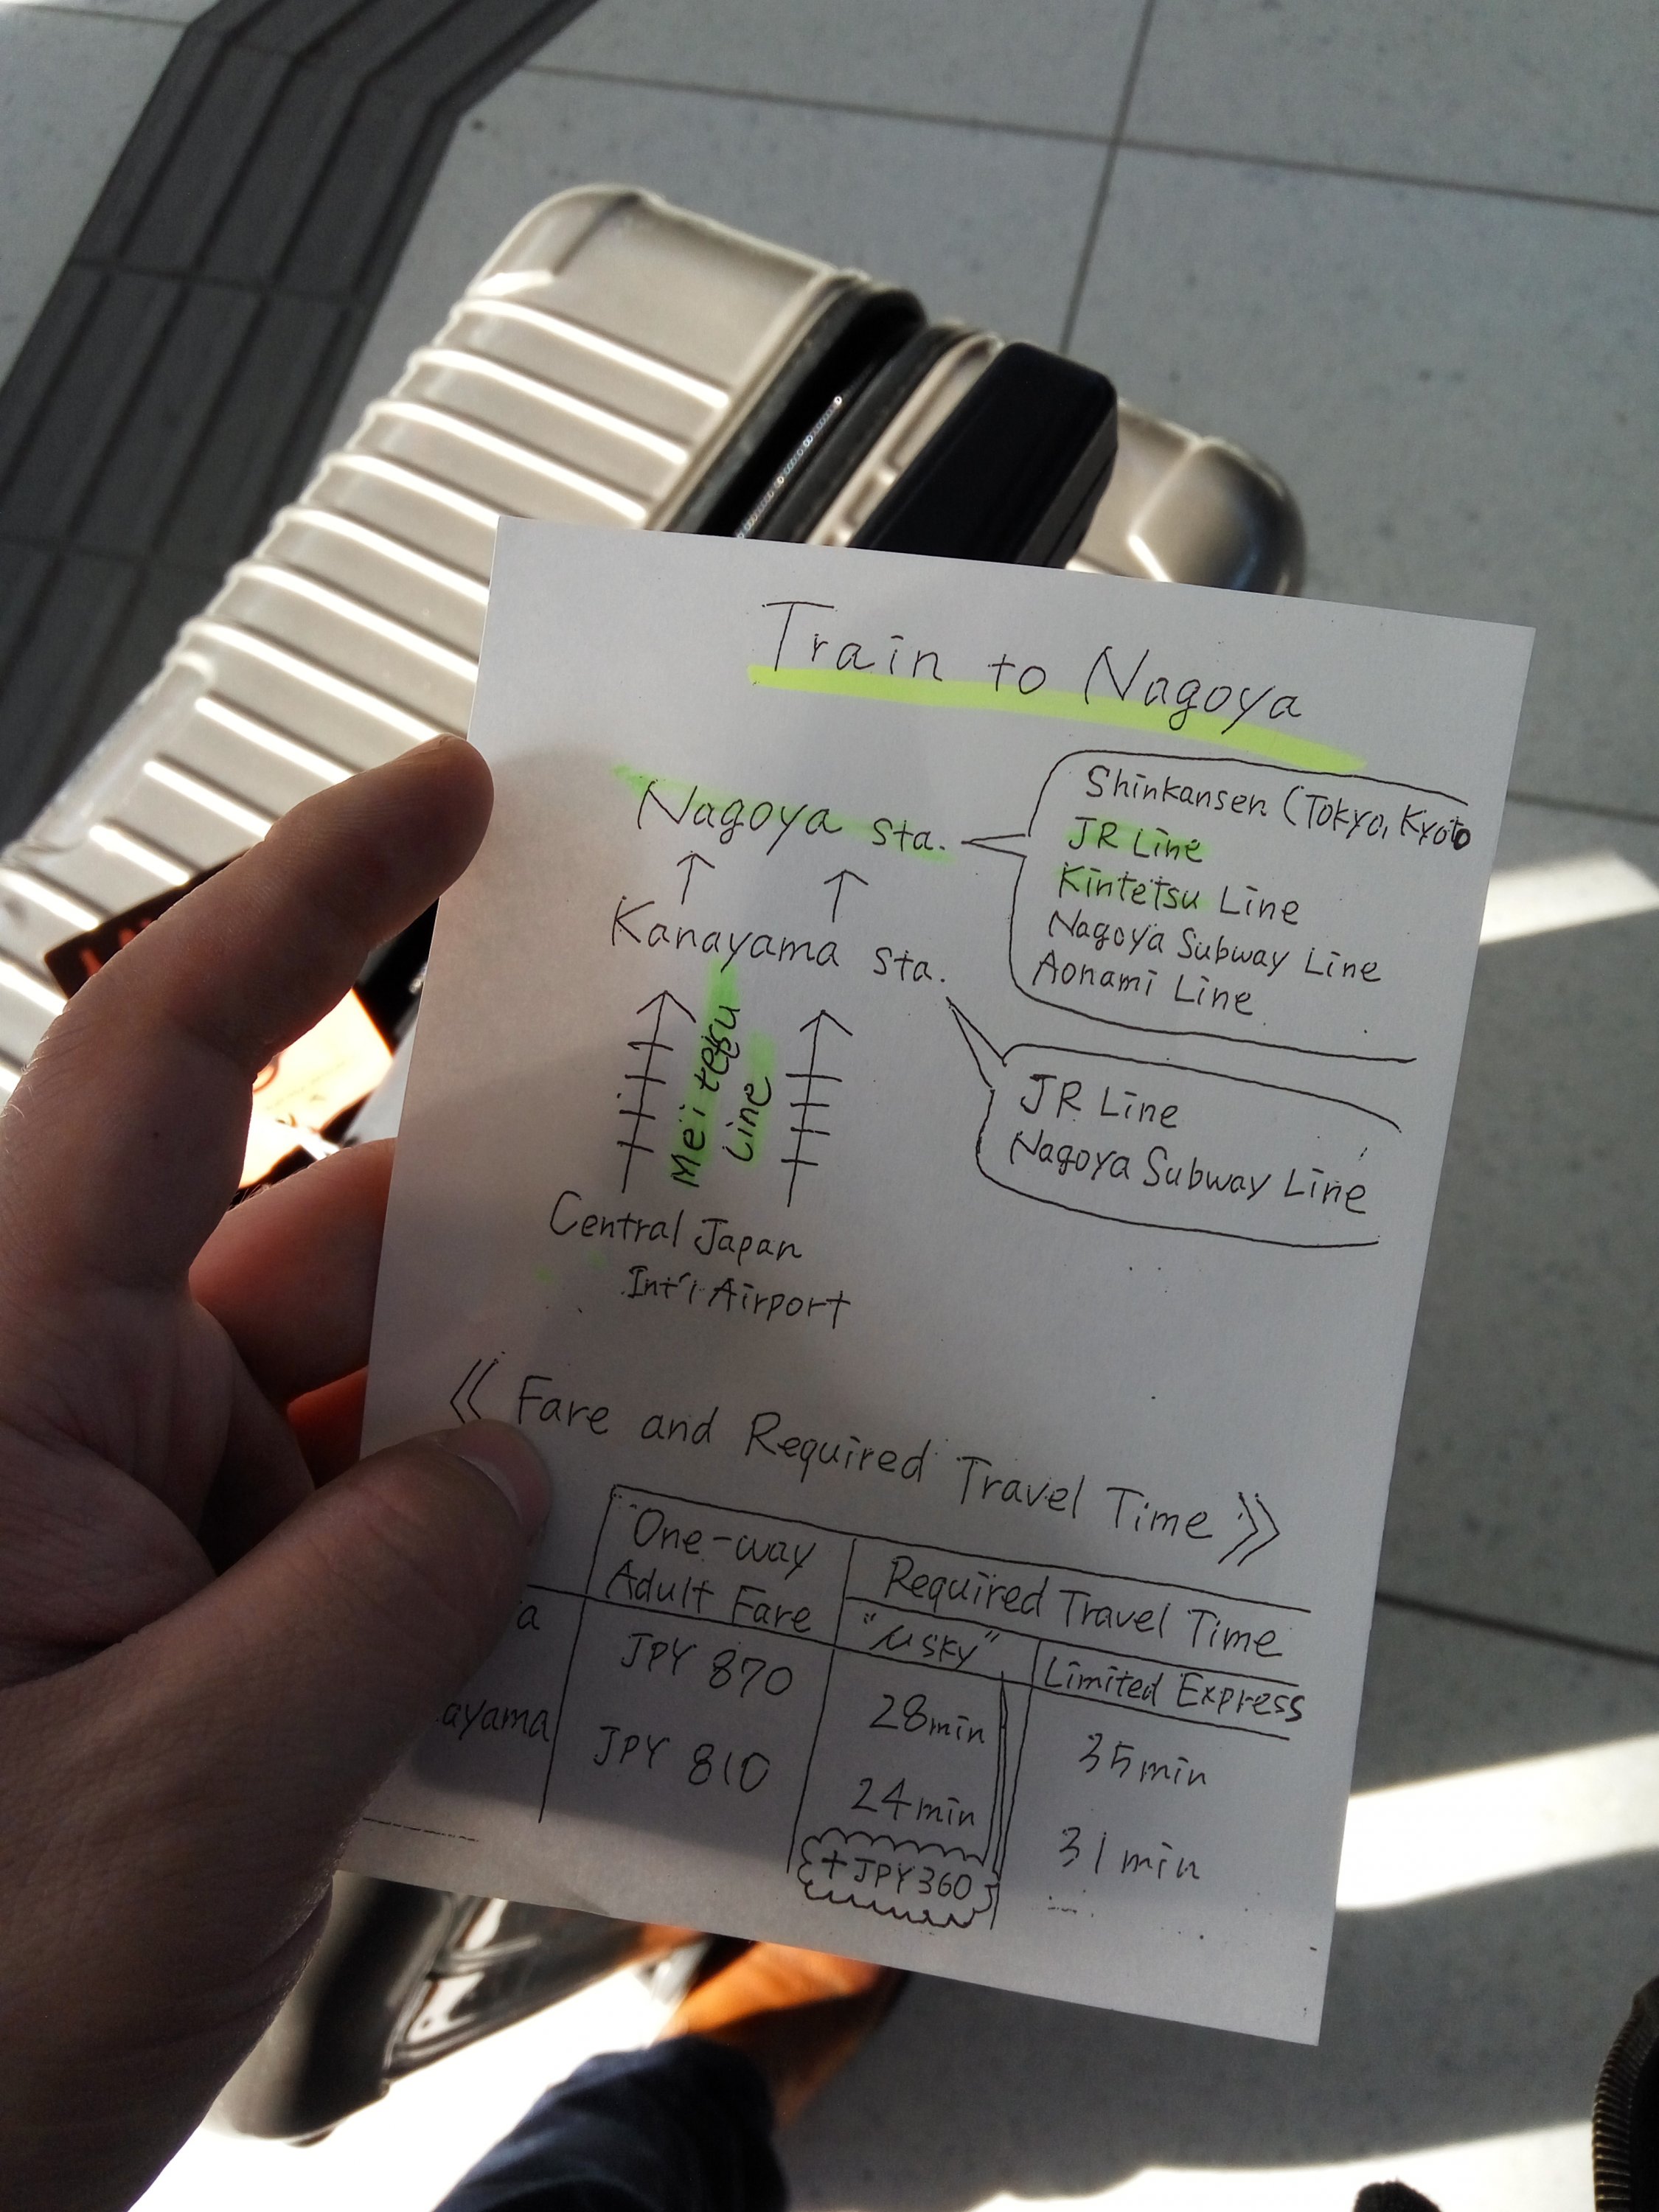 Train to Nagoya
Nagoya sta.
Shinkansen (Tokyo, Kyoto
JR Line
Kintetsu Line
Nagoya Subway Line
Aonami Line
Kanayama sta.
JR Line
Nagoya Subway Line
Meitetsu
Line
Central Japan
Int'l Airport
《 Fare and Required Travel Time 》
One-way
Adult Fare
Required Travel Time
"μ sky"
Limited Express
a
JPY 870
28min
35min
ayama
JPY 810
24min
31min
+JPY360